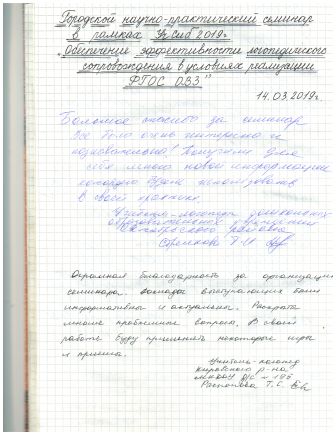 Городской научно-практический семинар
в рамках УчСиб 2019г.
"Обеспечение эффективности логопедического
сопровождения в условиях реализации
ФГОС ОВЗ"
14.03.2019г.
Большое спасибо за семинар
Все было очень интересно и
познавательно! Получили для
себя много новой информации
которую будем использовать
в своей практике.
Учителя-логопеды дошкольных
образовательных учреждений
района
Огромная благодарность за организацию
семинара. Доклады выступающих были
информативны и актуальны. Раскрыто
много проблемных вопросов. В своей
работе буду применять некоторые игры
и приемы.
Учитель-логопед
Кировского р-на
МКДОУ д/с № 195
Т.С.